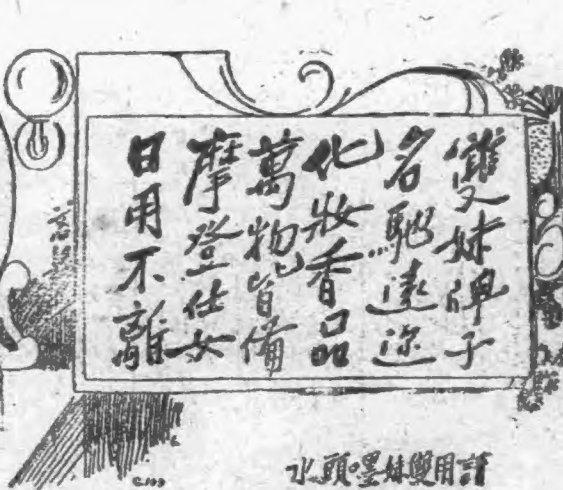 雙妹牌子
名馳遠迩
化妝香品
萬物皆備
摩登仕女
日用不離
請用雙妹嚜頭水